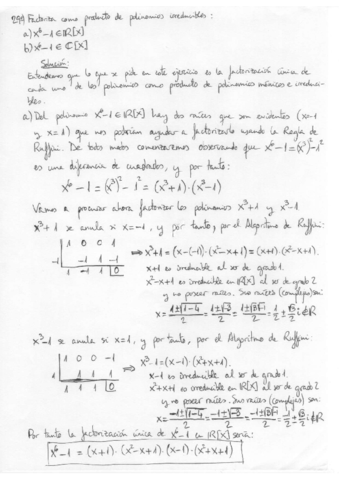 299 Factoriza como producto de polinomios irreducibles:
a) x⁶-1 ∈ ℝ[X]
b) x⁶-1 ∈ ℂ[X]
Solución:
Entendemos que lo que se pide en este ejercicio es la factorización única de
cada uno de los polinomios como producto de polinomios mónicos e irreduci-
bles.
a) Del polinomio x⁶-1 ∈ ℝ[X] hay dos raíces que son evidentes (x=-1
y x=1) que nos podrían ayudar a factorizarlo usando la Regla de
Ruffini. De todos modos comenzaremos observando que x⁶-1=(x³)²-1²
es una diferencia de cuadrados, y por tanto:
x⁶-1 = (x³)²-1² = (x³+1)·(x³-1)
Vamos a procurar ahora factorizar los polinomios x³+1 y x³-1
x³+1 se anula si x=-1, y por tanto, por el Algoritmo de Ruffini:
1 0 0 1
-1 -1 1 -1
1 -1 1 0
⇒ x³+1=(x-(-1))·(x²-x+1)=(x+1)·(x²-x+1).
x+1 es irreducible al ser de grado 1.
x²-x+1 es irreducible en ℝ[X] al ser de grado 2
y no poseer raíces. Sus raíces (complejas) son:
x = (1±√(1-4))/2 = (1±√-3)/2 = (1±√3√-1)/2 = 1/2 ± √3/2 i ∉ ℝ
x³-1 se anula si x=1, y por tanto, por el Algoritmo de Ruffini:
1 0 0 -1
1 1 1 1
1 1 1 0
⇒ x³-1=(x-1)·(x²+x+1).
x-1 es irreducible al ser de grado 1.
x²+x+1 es irreducible en ℝ[X] al ser de grado 2
y no poseer raíces. Sus raíces (complejas) son:
x = (-1±√(1-4))/2 = (-1±√-3)/2 = (-1±√3√-1)/2 = -1/2 ± √3/2 i ∉ ℝ
Por tanto la factorización única de x⁶-1 en ℝ[X] sería:
x⁶-1 = (x+1)·(x²-x+1)·(x-1)·(x²+x+1)